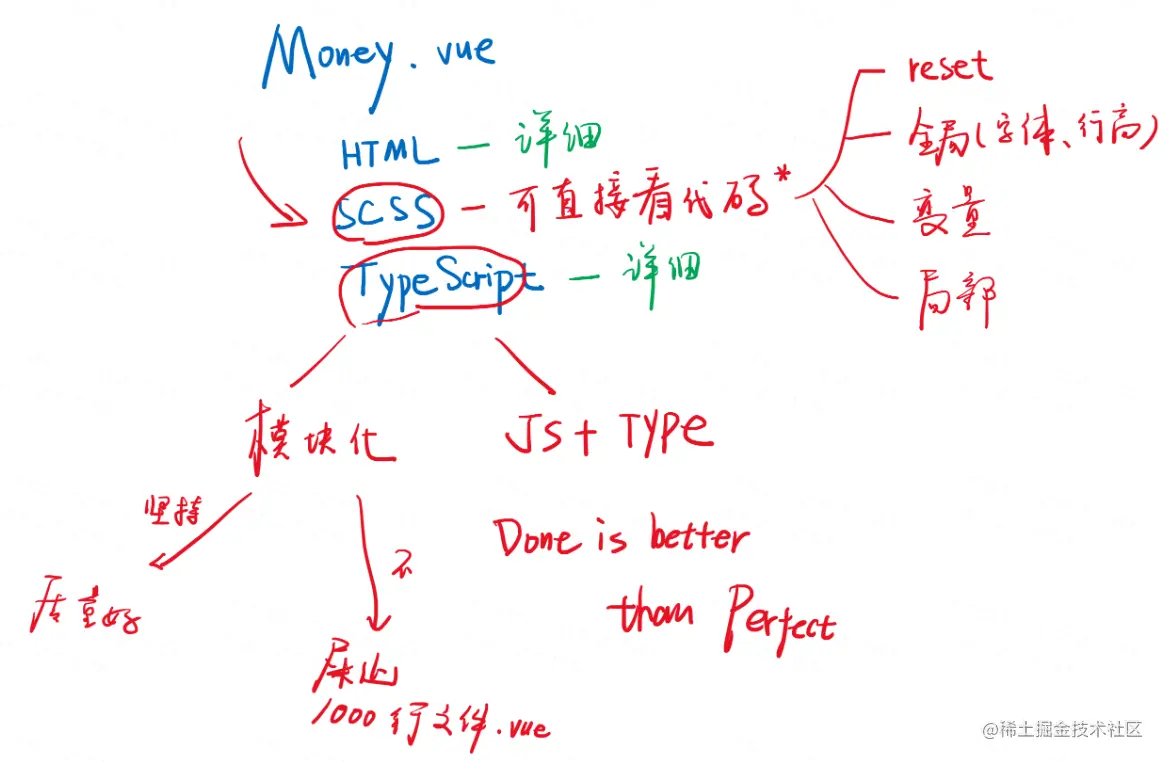 Money.vue
HTML — 详细
SCSS — 可直接看代码*
reset
全局(字体、行高)
变量
局部
TypeScript — 详细
模块化
JS + TYPE
坚持
质量好
不
屎山
1000行文件.vue
Done is better
than Perfect
@稀土掘金技术社区